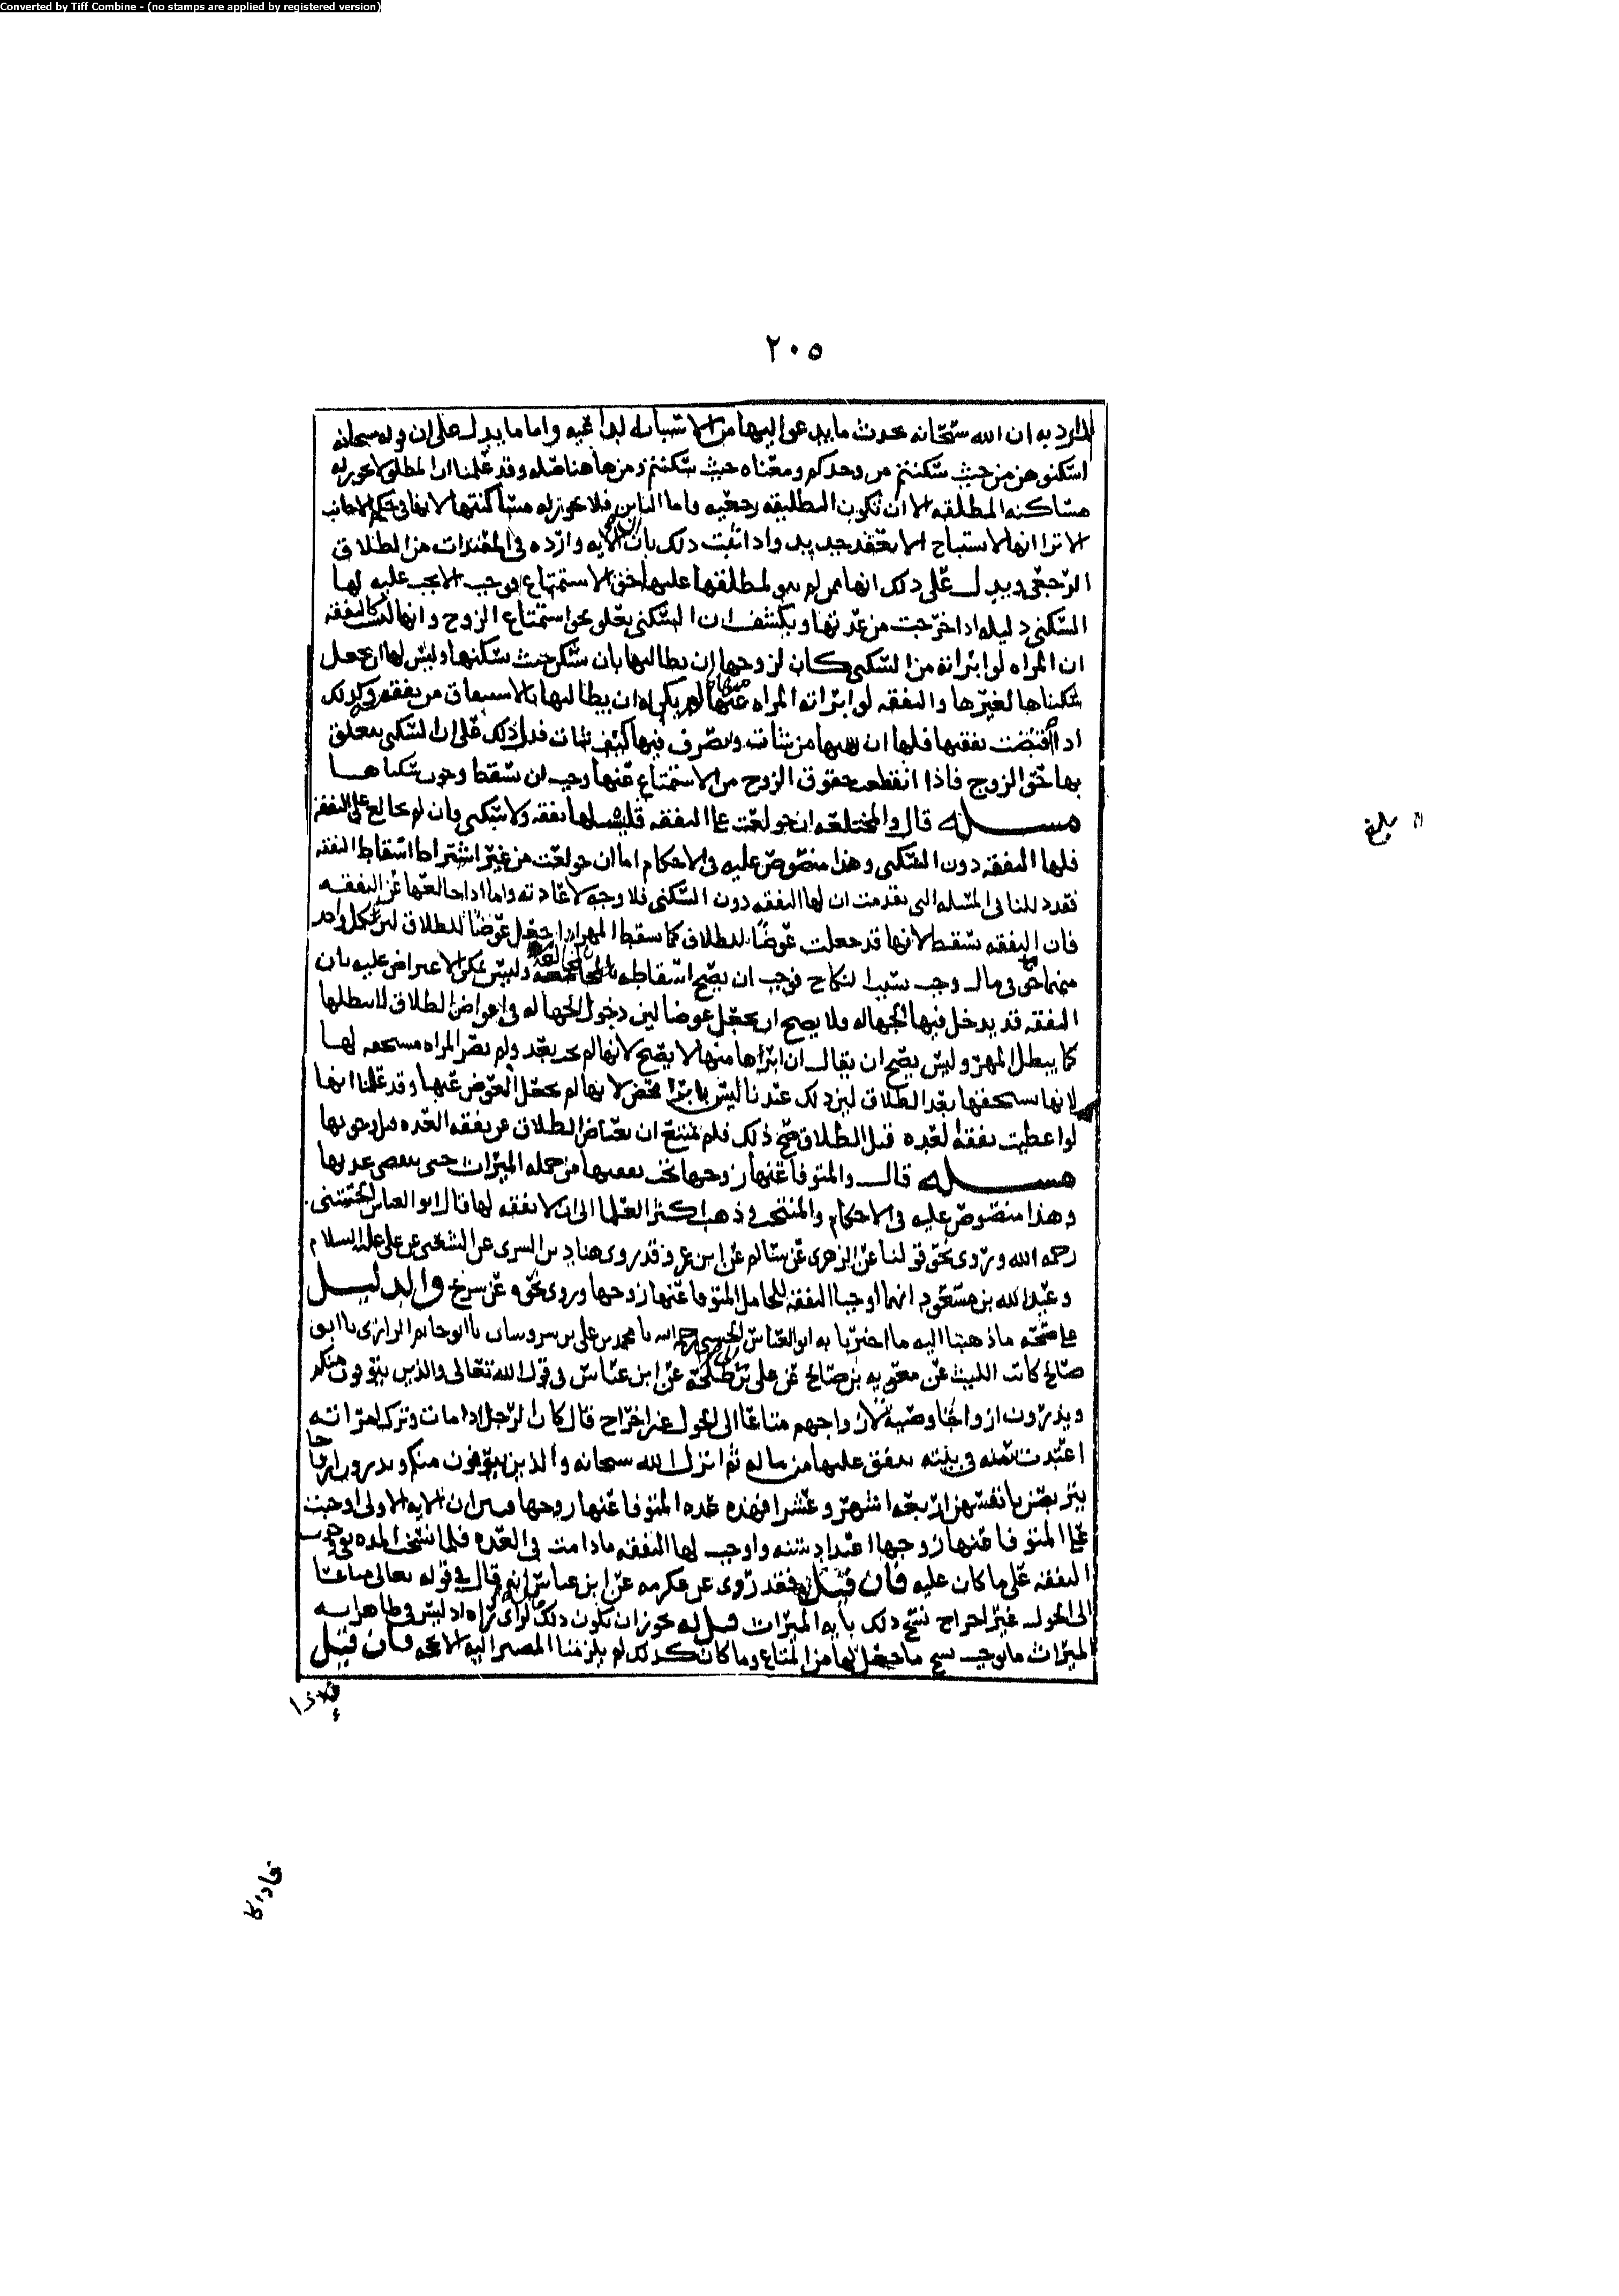 Converted by Tiff Combine - (no stamps are applied by registered version)
٢٠٥
المراد به ان الله سبحانه يحدث ما يدعو اليها من الاسباب له واما ما يدل على ان قوله سبحانه
اسكنوهن من حيث سكنتم من وجدكم ومعناه حيث سكنتم ومن هاهنا صله وقد علمنا ان المطلق لا يجوز له
مساكنه المطلقه الا ان تكون التطليقه رجعيه واما البائن فلا يجوز له مساكنتها لانها في حكم الاجانب
الا ترا انها لا تستباح الا بعقد جديد واذا ثبت ذلك بان ان الايه وارده في المعتدات من الطلاق
الرجعي ويدل على ذلك انها ممن لم يبق لمطلقها عليها حق الاستمتاع فوجب الا يجب عليه لها
السكنى دليله اذا خرجت من عدتها ويكشف ان السكنى يتعلق بحق استمتاع الزوج وانها ليست كالنفقه
ان المراه لو ابرأته من السكنى كان لزوجها ان يطالبها بان تسكن حيث يسكنها وليس لها ان تجعل
سكناها لغيرها والنفقه لو ابرأته المراه منها لم يكن له ان يطالبها بالاستيفاء من نفقته وكذلك
اذا قبضت نفقتها فلها ان تهبها من شات وتصرف فيها كيف شات فدل ذلك على ان السكنى يتعلق
بها حق الزوج فاذا انقطعت حقوق الزوج من الاستمتاع عنها وجب ان يسقط وجوب سكناها
مسله قال والمختلعه ان خولعت على النفقه فليس لها نفقه ولا سكنى وان لم تخالع على النفقه
فلها النفقه دون السكنى وهذا منصوص عليه في الاحكام اما ان خولعت من غير اشتراط اسقاط النفقه
فقد دللنا في المسله التي تقدمت ان لها النفقه دون السكنى فلا وجه لاعادته واما اذا خالعها عن النفقه
فان النفقه تسقط لانها قد جعلت عوضا للطلاق كما سقط المهر اذا جعل عوضا للطلاق لان كل واحد
منهما حق في مال وجب بسبب النكاح فوجب ان يصح اسقاطه بالمخالعه وليس يمكن الاعتراض عليه بان
النفقه قد يدخل فيها الجهاله ولا يصح ان يجعل عوضا لان دخول الجهاله في اعواض الطلاق لا يبطلها
كما يبطل المهر وليس يصح ان يقال ان ابراها منها لا يصح لانها لم تجب بعد ولم تصر المراه مستحقه لها
لانها تستحقها بعد الطلاق لان ذلك عندنا ليس بابرا محض لانها لم تجعل العوض عنها وقد علمنا انها
لو اعطيت نفقة العده قبل الطلاق صح ذلك فلم يمتنع ان يعتاض الطلاق عن نفقه العده قبل وجوبها
مسله قال والمتوفا عنها زوجها تجب نفقتها من جمله الميراث حتى تنقضي عدتها
وهذا منصوص عليه في الاحكام والمنتخب وذهب اكثر العلما الى ان لا نفقه لها قال ابو العباس الحسني
رحمه الله وتروى نحو قولنا عن الزهري عن سالم عن ابن عمر وقد روى هناد بن السري عن الشعبي عن علي عليه السلام
وعبد الله بن مسعود انهما اوجبا النفقه للحامل المتوفا عنها زوجها وروى نحوه عن شريح والدليل
على صحه ما ذهبنا اليه ما اخبرنا به ابو العباس الحسني رحمه الله نا محمد بن علي بن نا ابو حاتم الرازي نا ابو
صالح كاتب الليث عن معويه بن صالح عن علي بن ابي طلحه عن ابن عباس في قول الله تعالى والذين يتوفون منكم
ويذرون ازواجا وصية لازواجهم متاعا الى الحول غير اخراج قال كان الرجل اذا مات وترك امراته
اعتدت سنه في بيته ينفق عليها من ماله ثم انزل الله سبحانه والذين يتوفون منكم ويذرون ازواجا
يتربصن بانفسهن اربعه اشهر وعشرا فهذه عده المتوفا عنها زوجها فبين ان الايه الاولى اوجبت
على المتوفا عنها زوجها اعتداد سنه واوجب لها النفقه ما دامت في العده فلما نسخت المده بقي وجوب
النفقه على ما كان عليه فان قيل فقد روى عن عكرمه عن ابن عباس انه قال في قوله تعالى متاعا
الى الحول غير اخراج نسخ ذلك بايه الميراث قيل له يجوز ان تكون ذلك رأي رآه اذ ليس في ظاهر ايه
الميراث ما يوجب نسخ ما جعل لها من المتاع وما كان كذلك لم يلزمنا المصير اليه الا بحجه فان قيل
بلغ